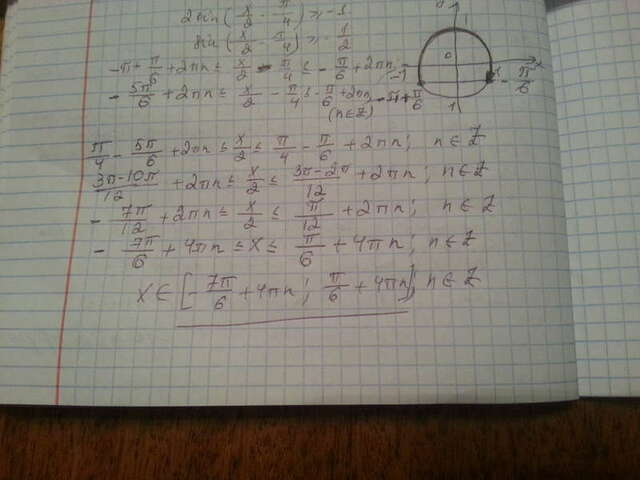 2sin(x/2 - π/4) ≥ -1
sin(x/2 - π/4) ≥ -1/2
-π + π/6 + 2πn ≤ x/2 - π/4 ≤ -π/6 + 2πn
-5π/6 + 2πn ≤ x/2 - π/4 ≤ -π/6 + 2πn
(n∈Z)
1
0
x
-1
-π/6
-π+π/6
1
π/4 - 5π/6 + 2πn ≤ x/2 ≤ π/4 - π/6 + 2πn; n∈Z
3π-10π/12 + 2πn ≤ x/2 ≤ 3π-2π/12 + 2πn; n∈Z
-7π/12 + 2πn ≤ x/2 ≤ π/12 + 2πn; n∈Z
-7π/6 + 4πn ≤ x ≤ π/6 + 4πn; n∈Z
x∈[-7π/6 + 4πn; π/6 + 4πn], n∈Z